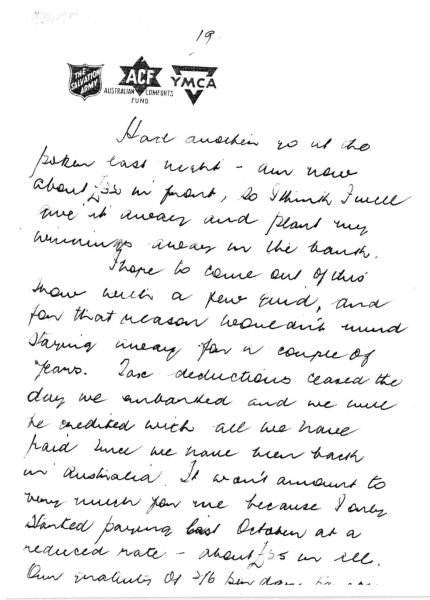 19.
THE SALVATION ARMY
ACF
AUSTRALIAN COMFORTS FUND
YMCA
Had another go at the
poker last night - am now
about £35 in front, so I think I will
give it away and plant my
winnings away in the bank.
I hope to come out of this
show with a few quid, and
for that reason wouldn't mind
staying away for a couple of
years. Tax deductions ceased the
day we embarked and we will
be credited with all we have
paid since we have been back
in Australia. It won't amount to
very much for me because I only
started paying last October at a
reduced rate - about £35 in all.
Our gratuity of 2/6 per day